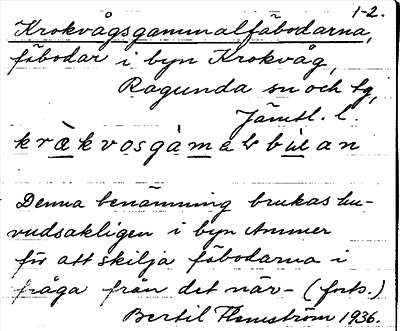 1-2.
Krokvågsgammalfäbodarna,
fäbodar i byn Krokvåg,
Ragunda sn och tg,
Jämtl. l.
krὰkvosgὰmabbὺlan
Denna benämning brukas hu-
vudsakligen i byn Ammer
för att skilja fäbodarna i
fråga från det när- (forts.)
Bertil Flemström 1936.